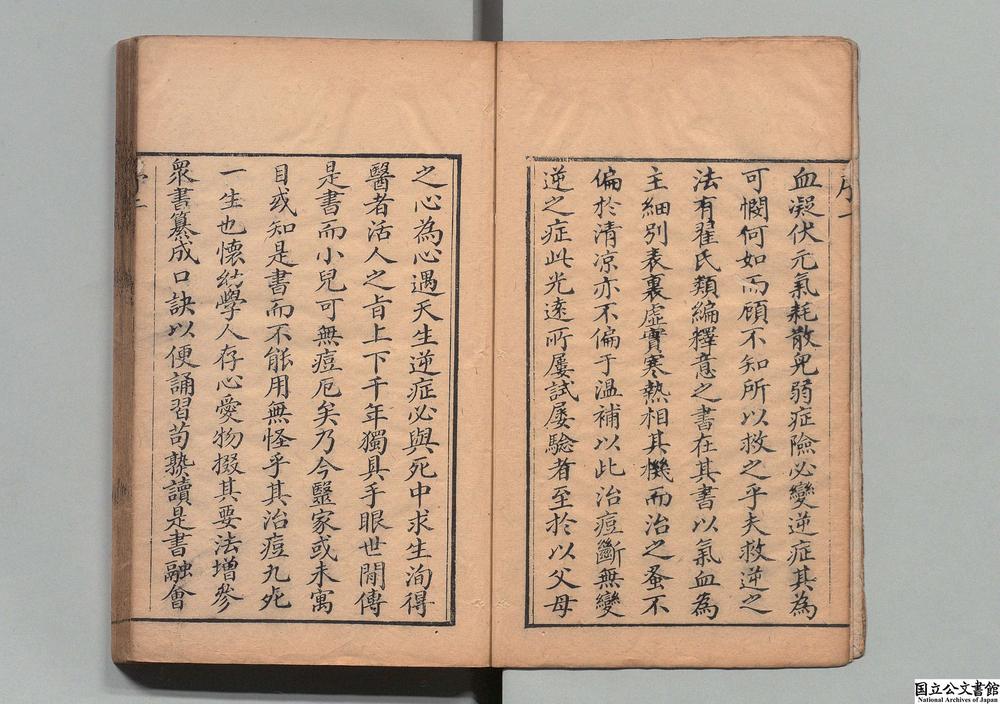 血凝伏元氣耗散兒弱症險必變逆症其為
可憫何如而顧不知所以救之乎夫救逆之
法有翟氏類編釋意之書在其書以氣血為
主細別表裏虛實寒熱相其機而治之蚤不
偏於清凉亦不偏于溫補以此治痘斷無變
逆之症此光遠所屢試屢驗者至於以父母
之心為心遇天生逆症必與死中求生洵得
醫者活人之旨上下千年獨具手眼世間傳
是書而小兒可無痘厄矣乃今醫家或未寓
目或知是書而不能用無怪乎其治痘九死
一生也懷結學人存心愛物掇其要法增參
衆書纂成口訣以便誦習苟熟讀是書融會
国立公文書館
National Archives of Japan